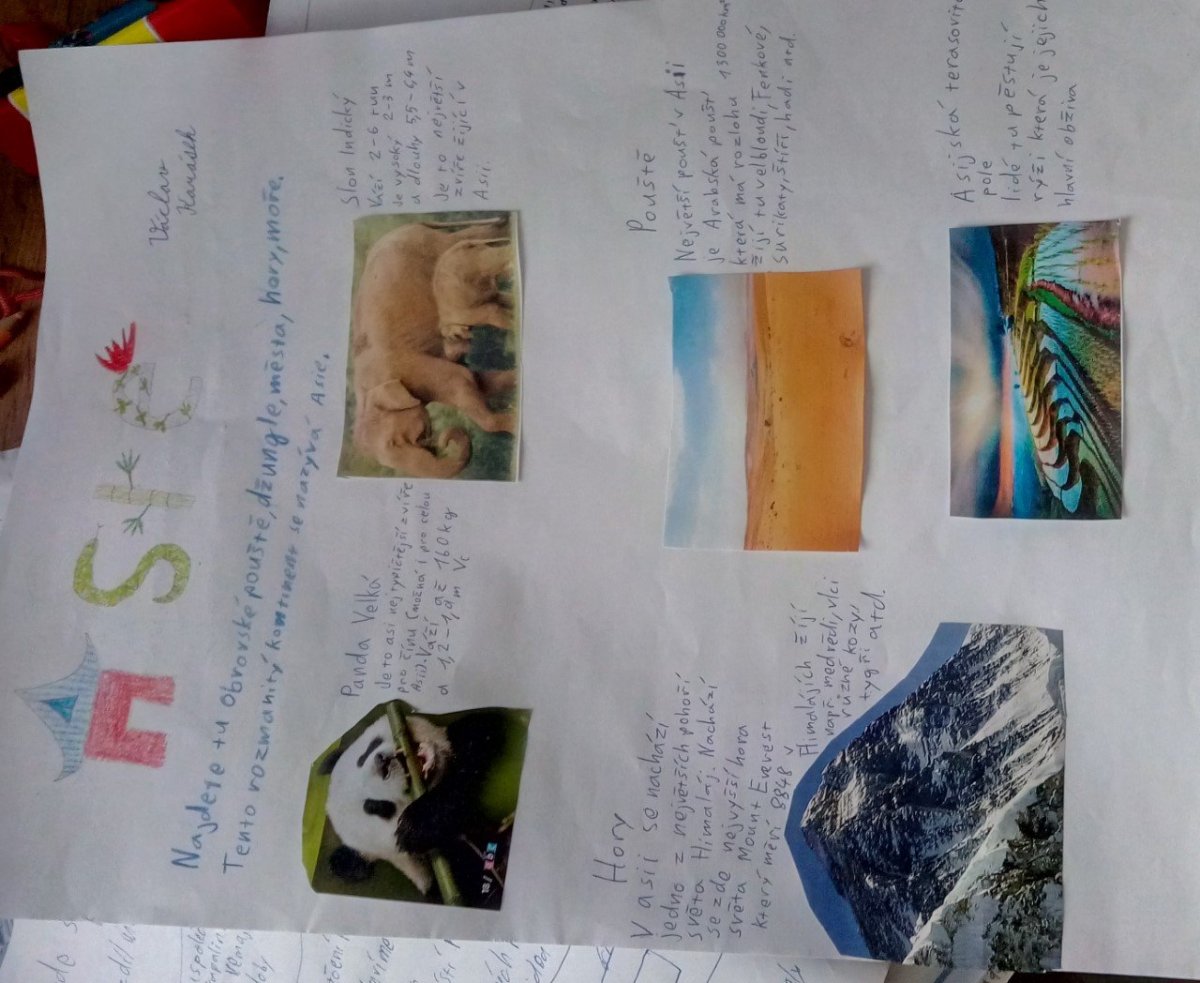 ASIE
Václav
Najdete tu obrovské pouště, džungle, města, hory, moře.
Tento rozmanitý kontinent se nazývá Asie.
Panda Velká
Je to asi nejtypičtější zvíře
pro čínu (možná i pro celou
Asii). Váží až 160 kg
a 1,2-1,8m
Slon Indický
Váží 2-6 tun
Je vysoký 2-3 m
a dlouhý 5,5-6,4 m
Je to největší
zvíře žijící v
Asii.
Hory
V asii se nachází
jedno z největších pohoří
světa Himaláj. Nachází
se zde nejvyšší hora
světa Mount Everest
který měří 8848
V Himalájích žijí
např. medvědi, vlci
různé kozy
tygři atd.
Pouště
Největší poušť v Asii
je Arabská poušť
která má rozlohu 1300000km²
žijí tu velbloudi, Fenkové,
surikaty, štíři, hadi atd.
Asijská terasovitá
pole
lidé tu pěstují
rýži která je jejich
hlavní obživa